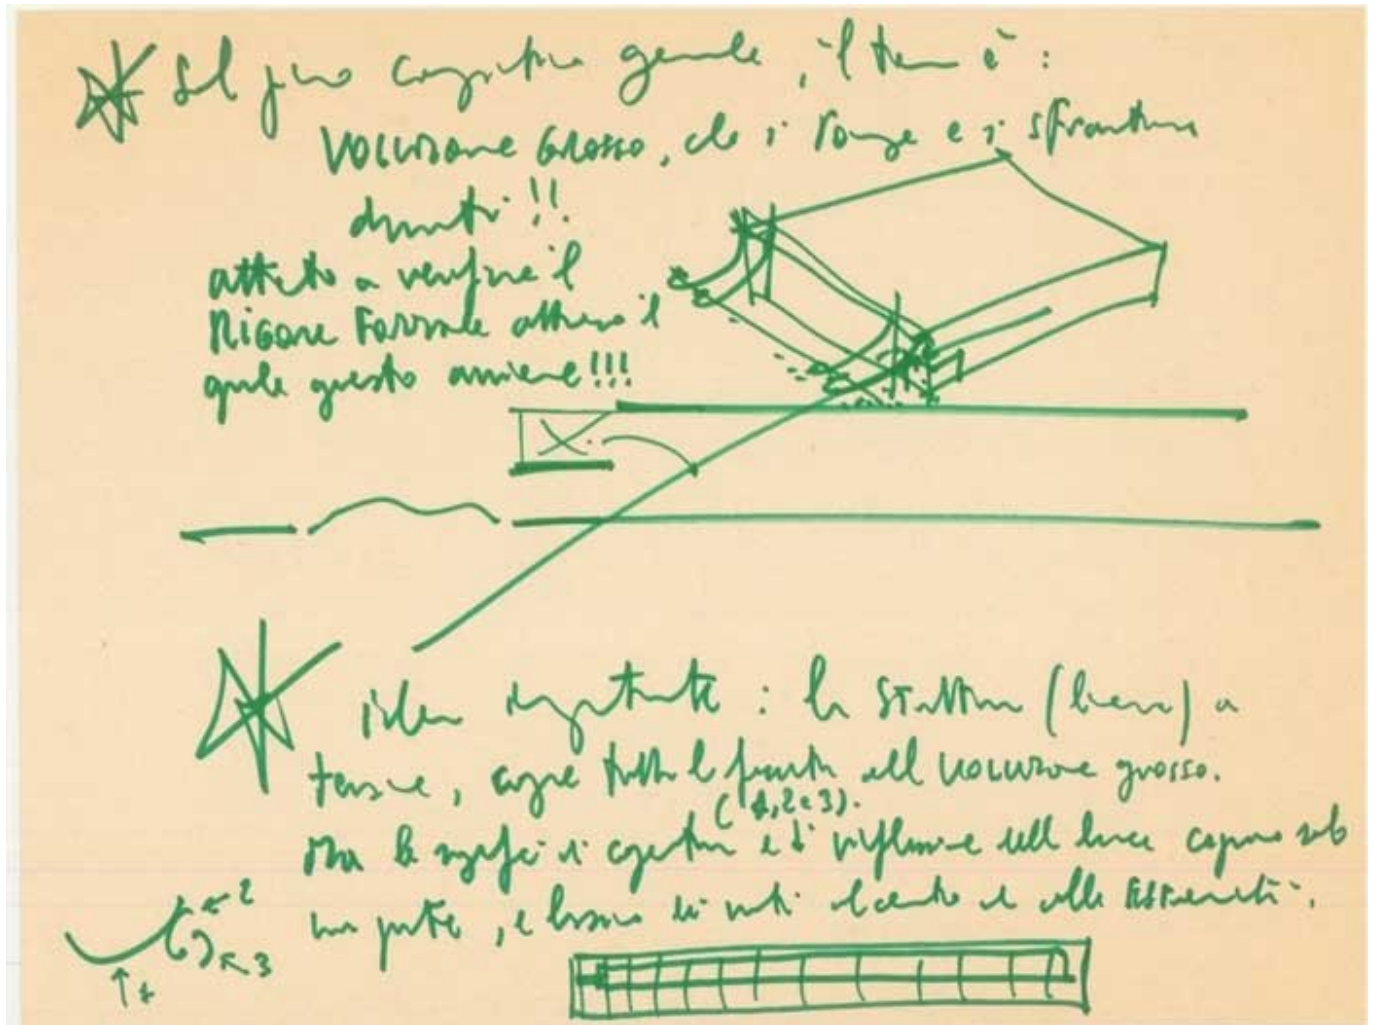 Sul piano compositivo generale, il tema è:
VOLUMONE GROSSO, che si rompe e si sfrantuma
davanti!!
attento a verificare il
RIGORE FORMALE attraverso il
quale questo avviene!!!
idea importante: la STRUTTURA (lieve) a
tensione, copre tutto il fronte del VOLUMONE grosso.
(1, 2 e 3).
Ma le superfici di copertura e di riflessione della luce coprono solo
una parte, e lasciano dei vuoti al centro e alle ESTREMITÀ.
2
3
1